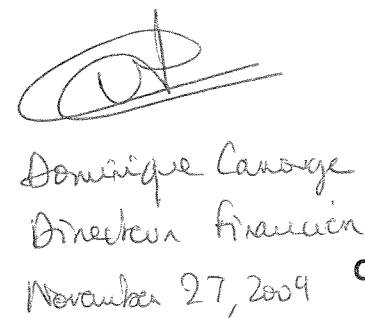 Dominique Canonge
Directeur Financier
November 27, 2009